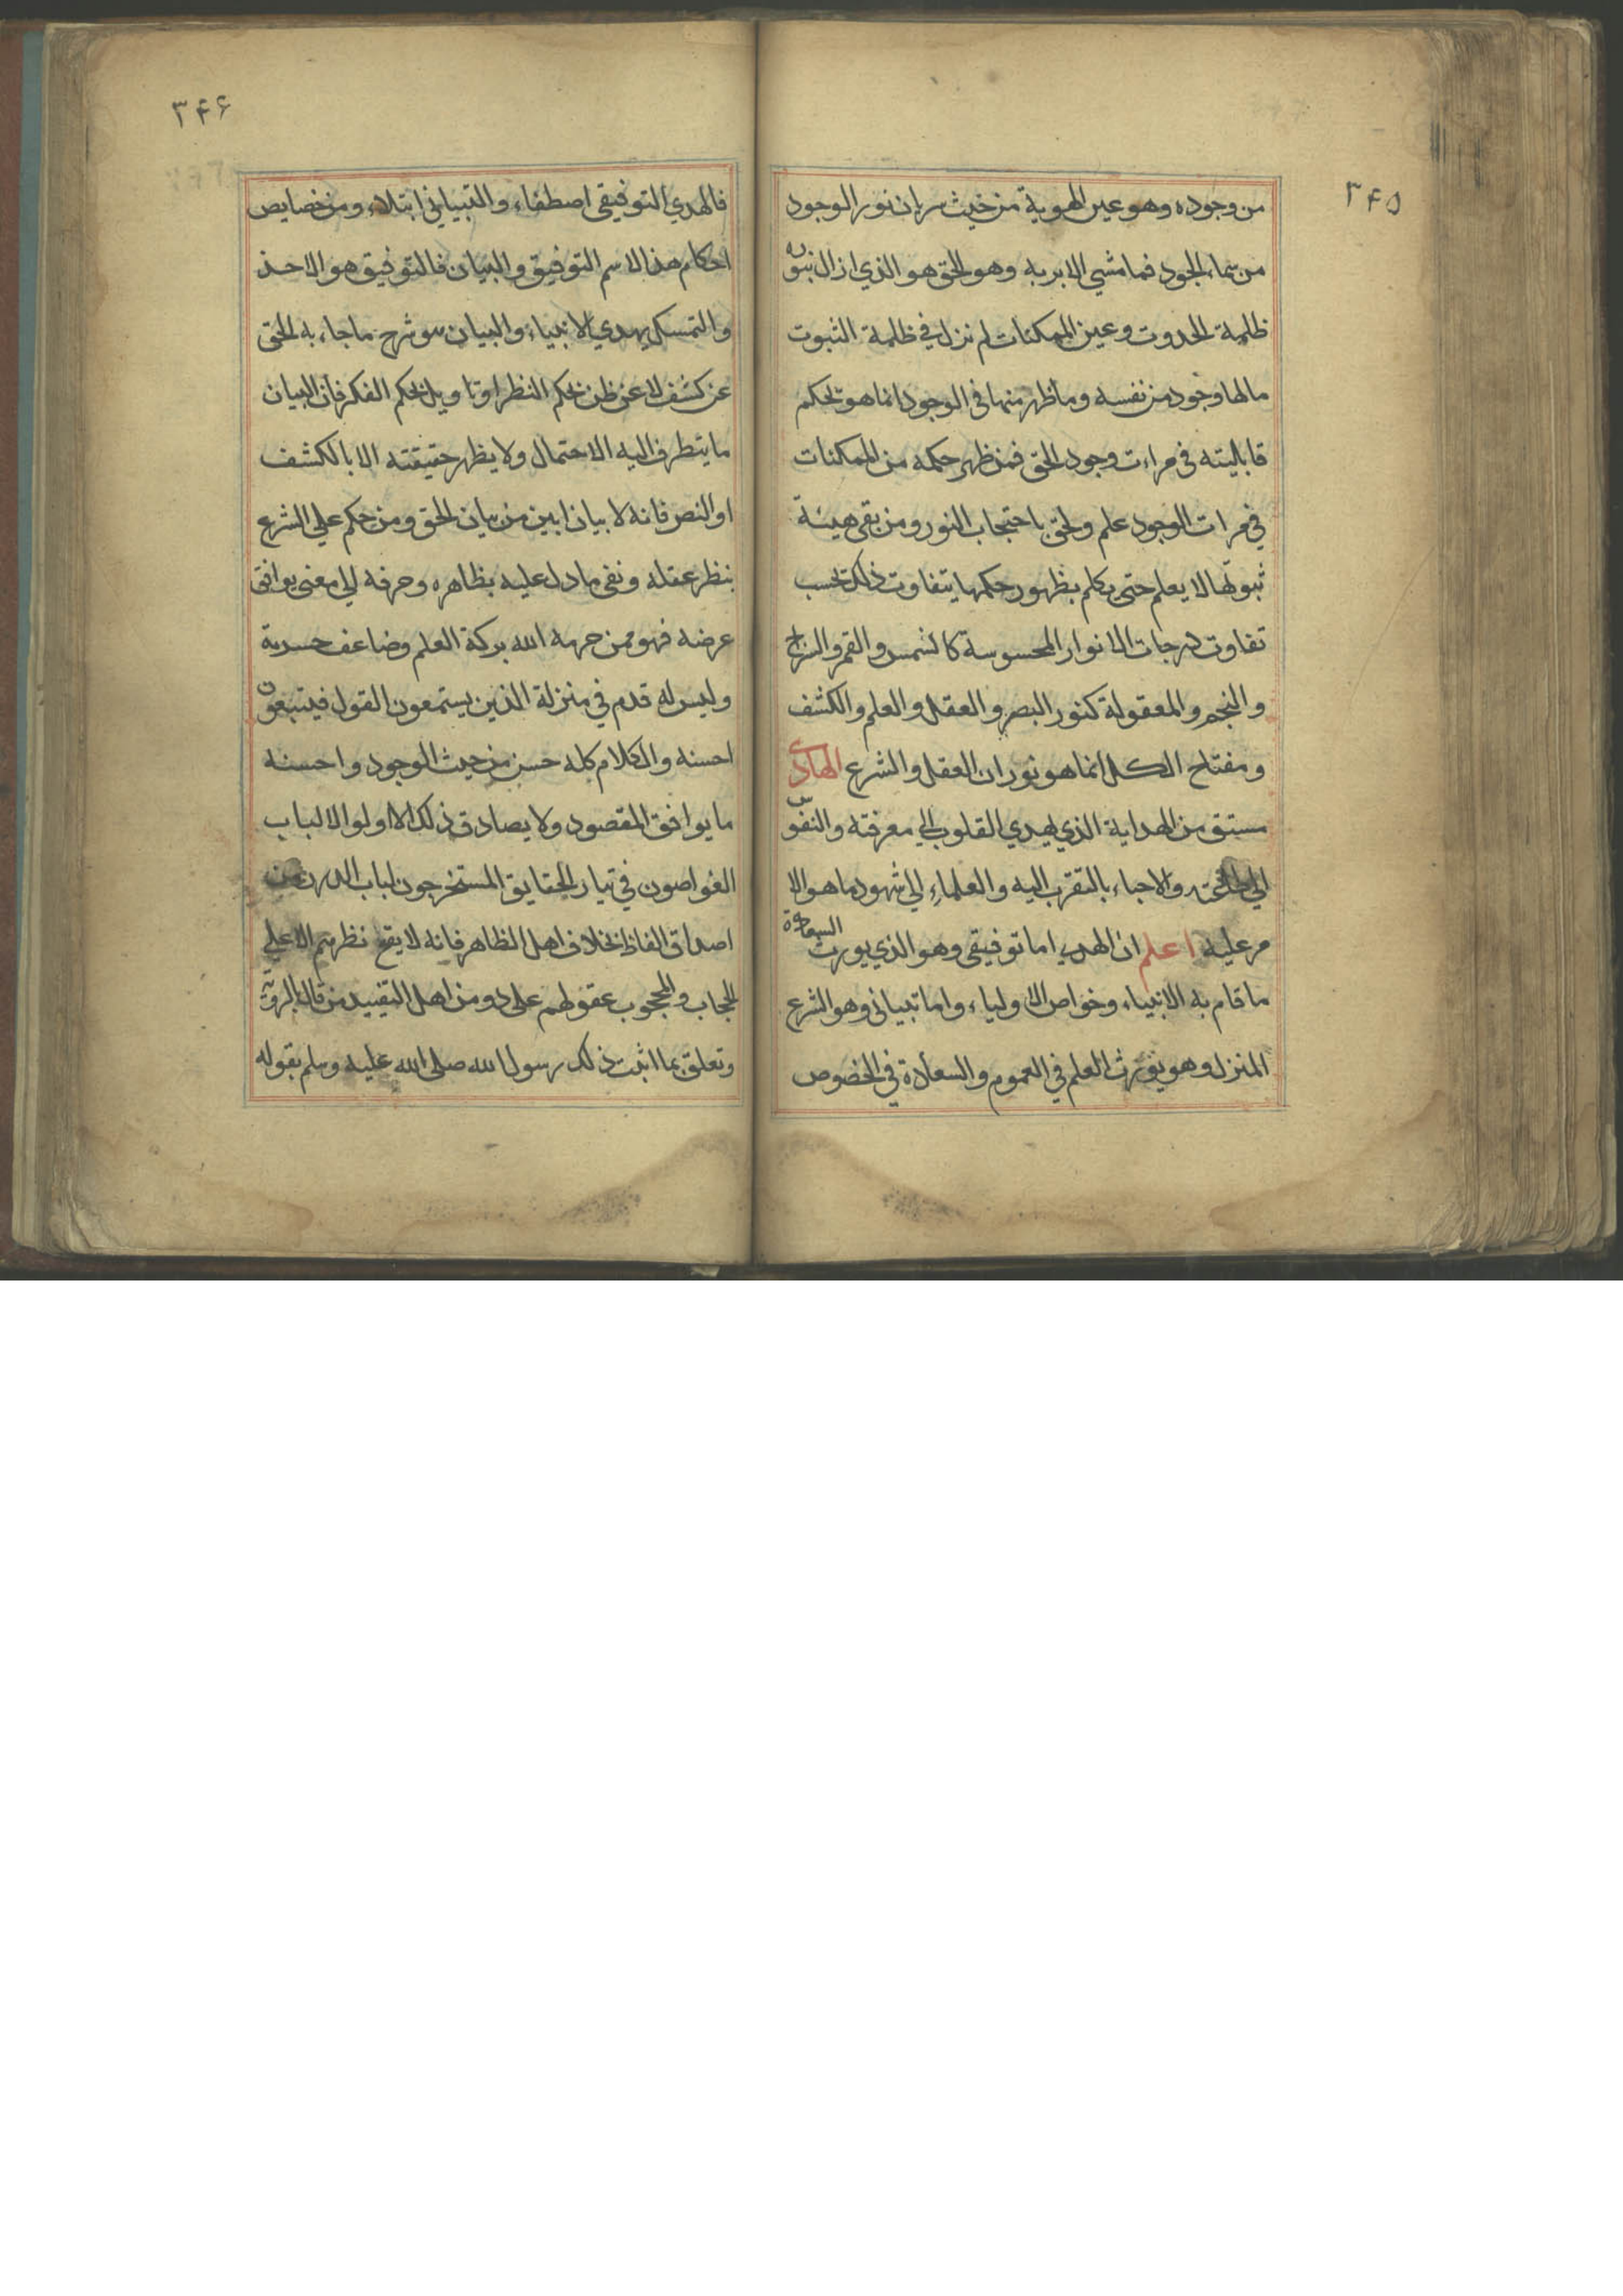 ٣۴۵
من وجوده وهو عين الهوية من حيث سريان نور الوجود
من سماء الجود فما مشي الا بربه وهو الحق هو الذي ازال بنوره
ظلمة الحدوث وعين الممكنات لم نزل في ظلمة الثبوت
مالها وجود من نفسه وما ظهر منها في الوجود انما هو تحكم
قابليته في مراءت وجود الحق فمن ظهر حكمه من الممكنات
في مرات الوجود علم ولحق باحتجاب النور ومن بقي هيئة
ثبوتها لا يعلم حتى يكلم بظهور حكمها يتفاوت ذلك بحسب
تفاوت درجات الانوار المحسوسة كالشمس والقمر والسراج
والنجم والمعقولة كنور البصر والعقل والعلم والكشف
ومفتاح الكل انما هو نوران العقل والشرع الهادى
مستق من الهداية الذي يهدي القلوب الي معرفته والنفوس
الي طاعته والاحباء بالتقرب اليه والعلماء الي شهود ما هو الا
مر عليه اعلم ان الهدي اما توفيقي وهو الذي يورث السعادة
ما قام به الانبياء وخواص الاولياء واما تبياني وهو الشرع
المنزل وهو يورث العلم في العموم والسعادة في الخصوص
٣۴۶
فالهدي التوفيقي اصطفاء والتبياني ابتلاء ومن خصايص
احكام هذا الاسم التوفيق والبيان فالتوفيق هو الاخذ
والتمسك بهدي الانبياء والبيان هو شرح ما جاء به الحق
عن كشف لا عن ظن بحكم النظر او تاويل بحكم الفكر فان البيان
ما يتطرف اليه الاحتمال ولا يظهر حقيقته الا بالكشف
او النص فانه لا بيان ابين من بيان الحق ومن حكم علي الشرع
بنظر عقله ونفى ما دل عليه بظاهره وحرفه الي معنى يوافق
عرضه فهو ممن حرمه الله بركة العلم وضاعف حسرته
وليس له قدم في منزلة الذين يستمعون القول فيتبعون
احسنه والكلام كله حسن من حيث الوجود واحسنه
ما يوافق المقصود ولا يصادق ذلك الا اولوا الالباب
الغواصون في تيار الحقايق المستخرجون لباب الدر من
اصداق الفاظ بخلاف اهل الظاهر فانه لا يقع نظرهم الا علي
الحجاب والمحجوب عقولهم على دو من اهل التقييد من قال بالروية
وتعلق بما اثبت ذلك رسول الله صلى الله عليه وسلم بقوله